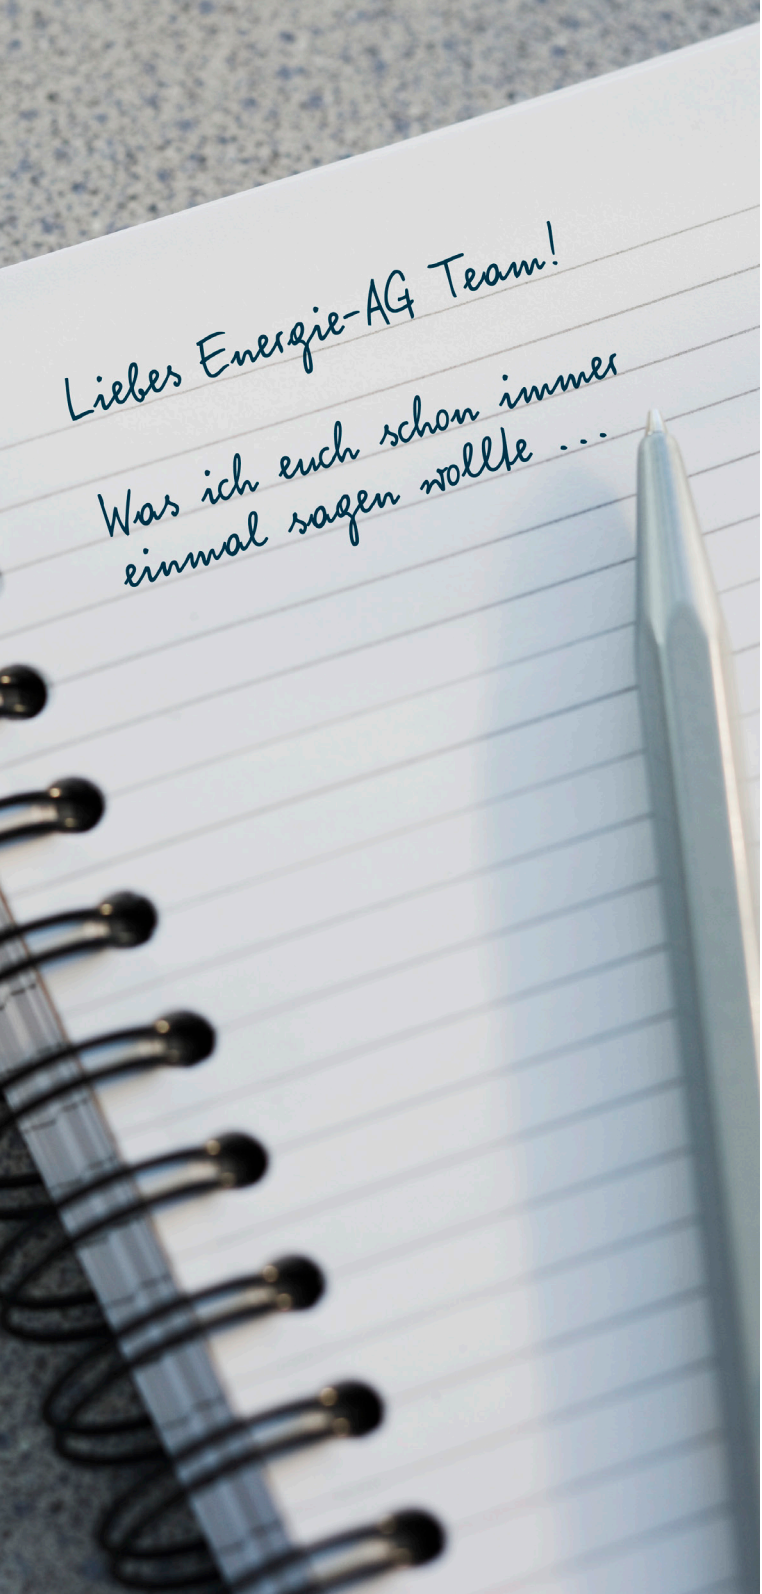 Liebes Energie-AG Team!
Was ich euch schon immer
einmal sagen wollte ...